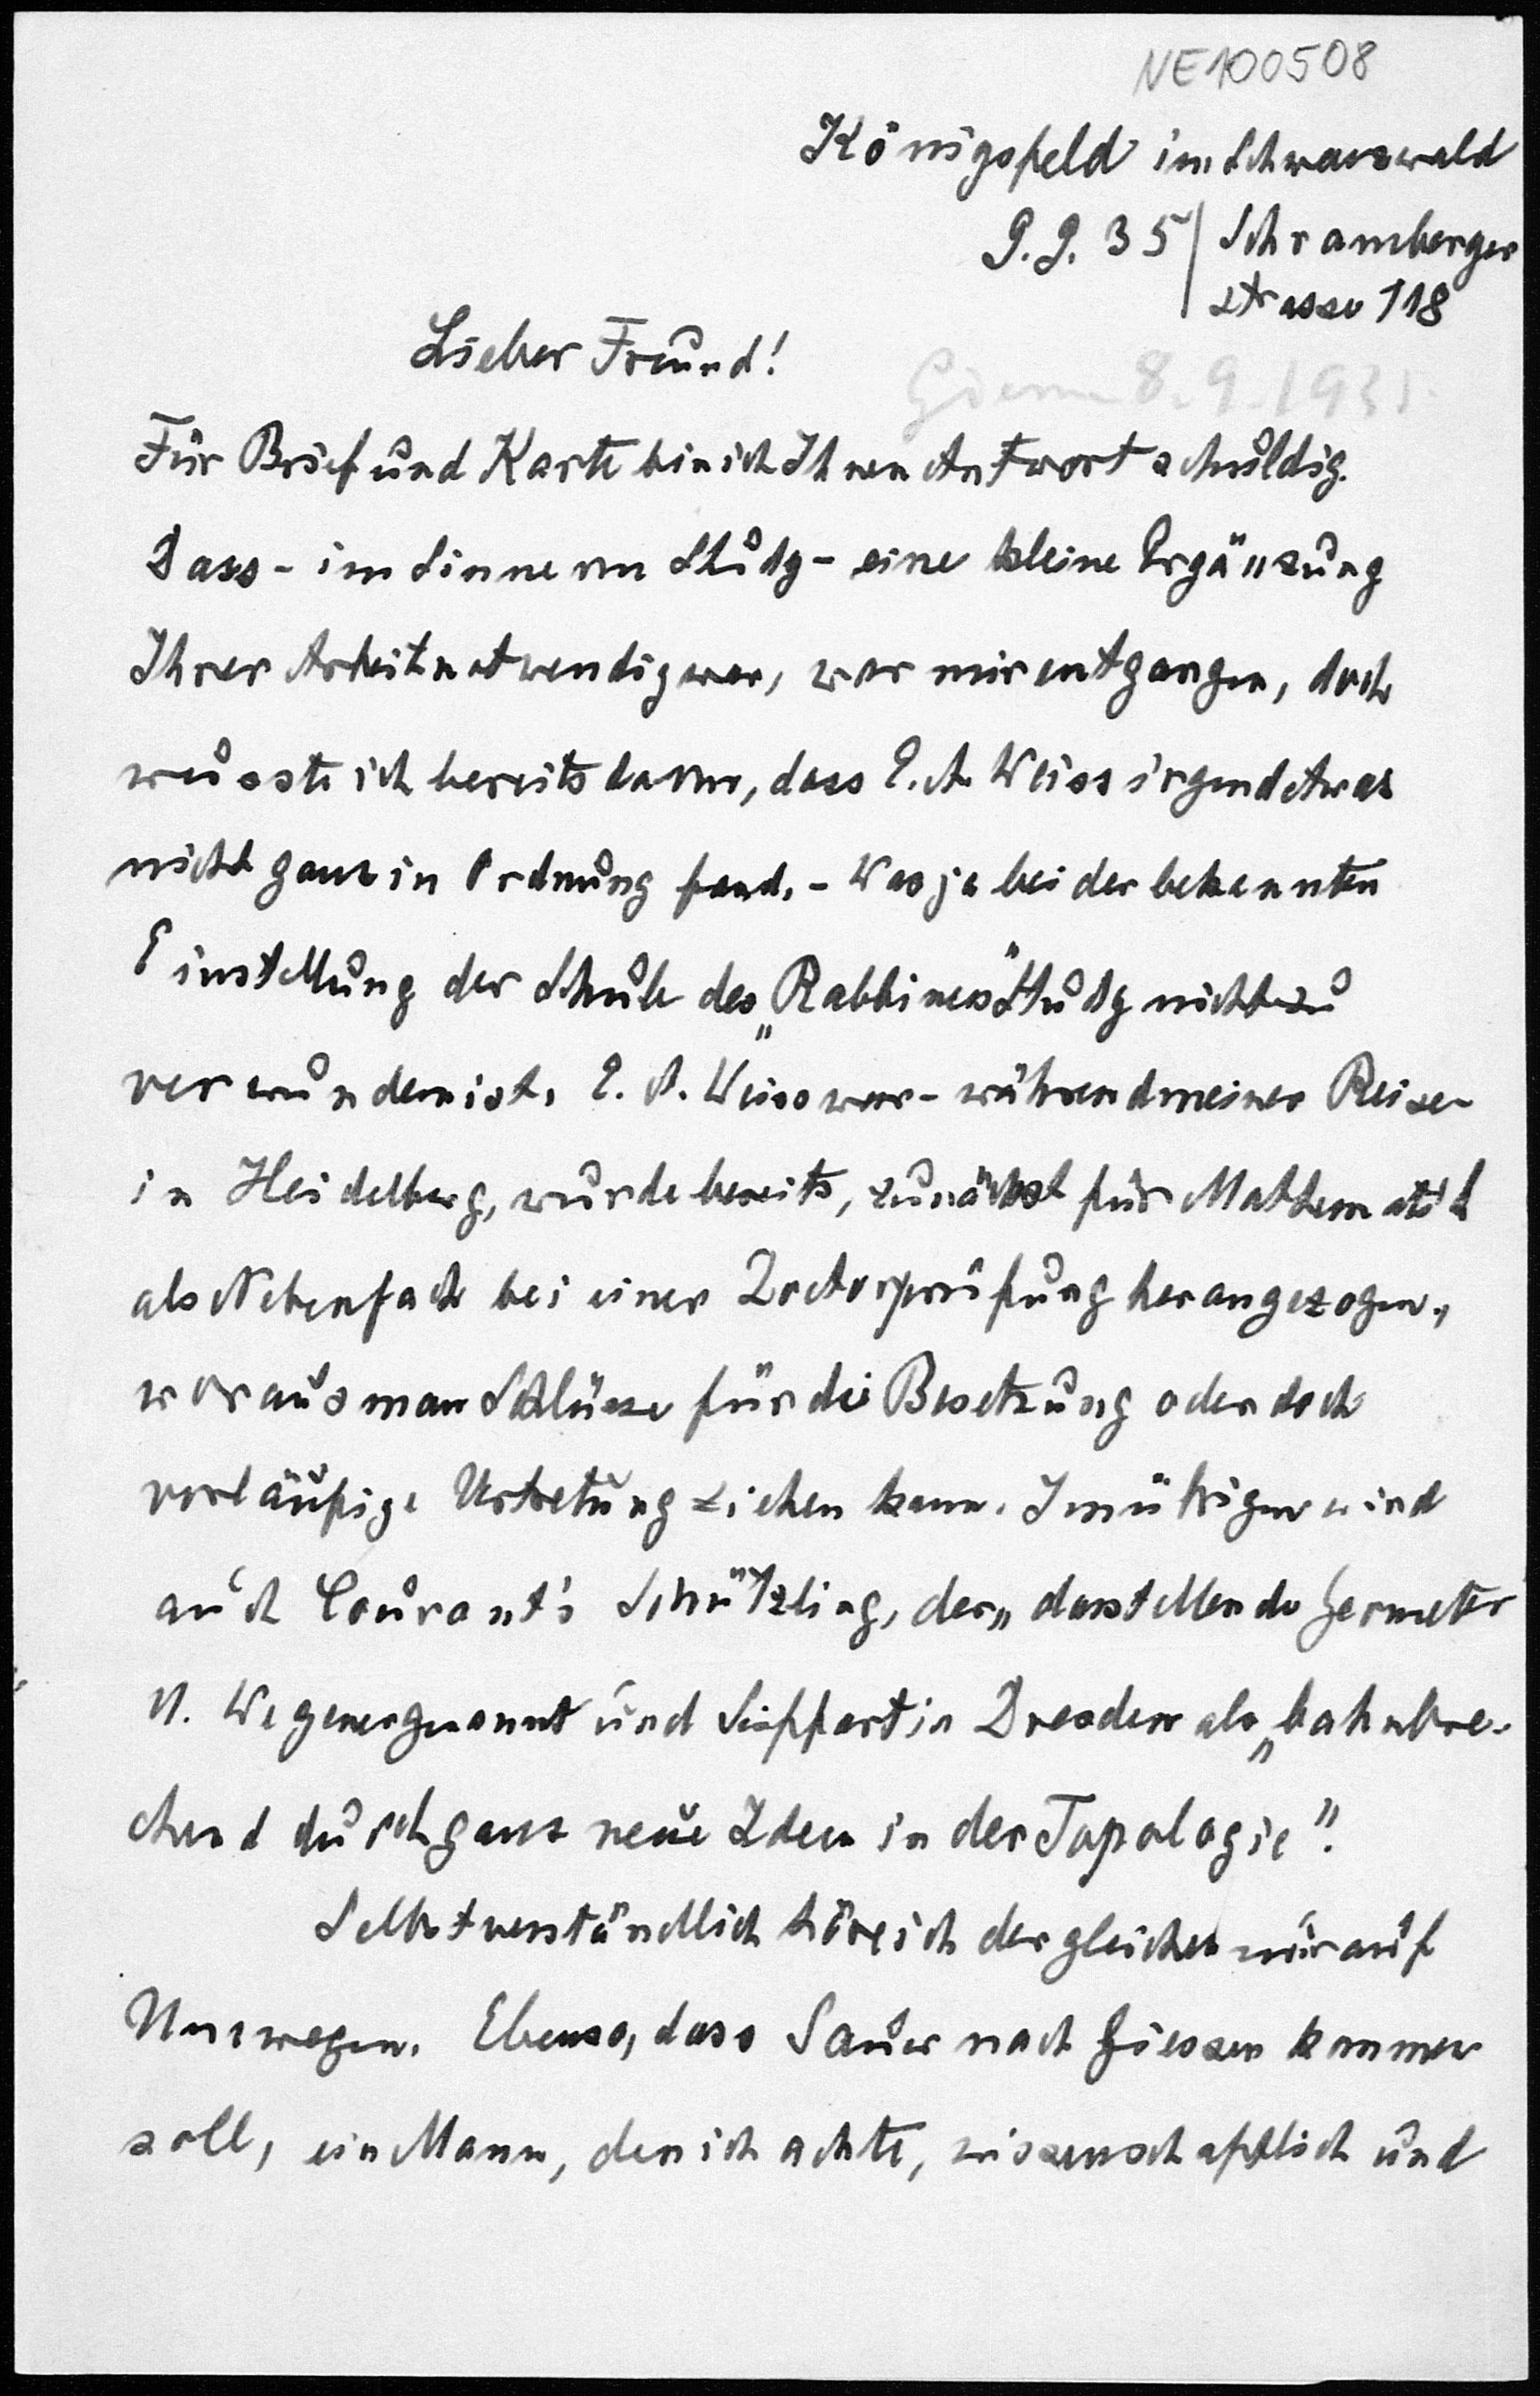 NE100508
Königsfeld im Schwarzwald
P.P. 35 | Schramberger
strasse 118
Lieber Freund!
8.9.1931.
Für Brief und Karte bin ich Ihnen Antwort schuldig.
Dass - im Sinne von Study - eine kleine Ergänzung
Ihrer Arbeit notwendig war, war mir entgangen, doch
wusste ich bereits davon, dass E. A. Weiss irgend etwas
nicht ganz in Ordnung fand. - Was ja bei der bekannten
Einstellung der Schule des „Rabbiners" Study nicht zu
verwundern ist. E. A. Weiss war - während meiner Reise -
in Heidelberg, wurde bereits, zunächst für Mathematik
als Nebenfach bei einer Doctorprüfung herangezogen,
woraus man Schlüsse für die Besetzung oder doch
vorläufige Vertretung ziehen kann. Im übrigen wird
auch Courant's Schützling, der „darstellende Geometer
U. Wegener genannt und Seiffert in Dresden als „bahnbre-
chend durch ganz neue Ideen in der Topologie".
Selbstverständlich höre ich dergleichen nur auf
Umwegen. Ebenso, dass Sauer nach Giessen kommen
soll, ein Mann, den ich achte, wissenschaftlich und